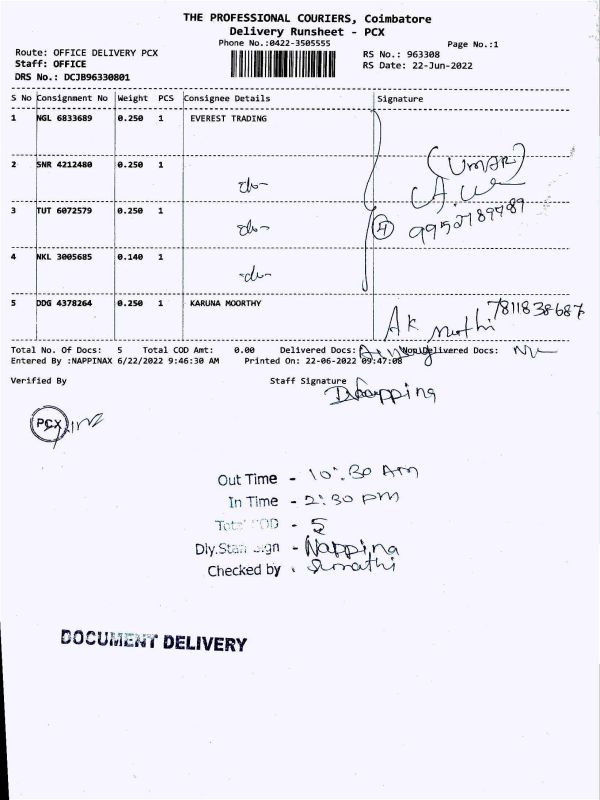 THE PROFESSIONAL COURIERS, Coimbatore
Delivery Runsheet - PCX
Phone No.:0422-3505555
Page No.:1
Route: OFFICE DELIVERY PCX
RS No.: 963308
Staff: OFFICE
RS Date: 22-Jun-2022
DRS No.: DCJB96330801
S No Consignment No Weight PCS Consignee Details Signature
1 NGL 6833689 0.250 1 EVEREST TRADING
2 SNR 4212480 0.250 1 -do-
(UMAR)
3 TUT 6072579 0.250 1 -do-
4 9952789789
4 NKL 3005685 0.140 1 -do-
5 DDG 4378264 0.250 1 KARUNA MOORTHY
7811838687
AK Moothi
Total No. Of Docs: 5 Total COD Amt: 0.00 Delivered Docs: Non Delivered Docs:
Entered By :NAPPINAX 6/22/2022 9:46:30 AM Printed On: 22-06-2022 09:47:08
Verified By Staff Signature
PCX
Out Time - 10:30 Am
In Time - 2:30 pm
Total COD - 5
Dly.Staff Sign - Nappina
Checked by
DOCUMENT DELIVERY